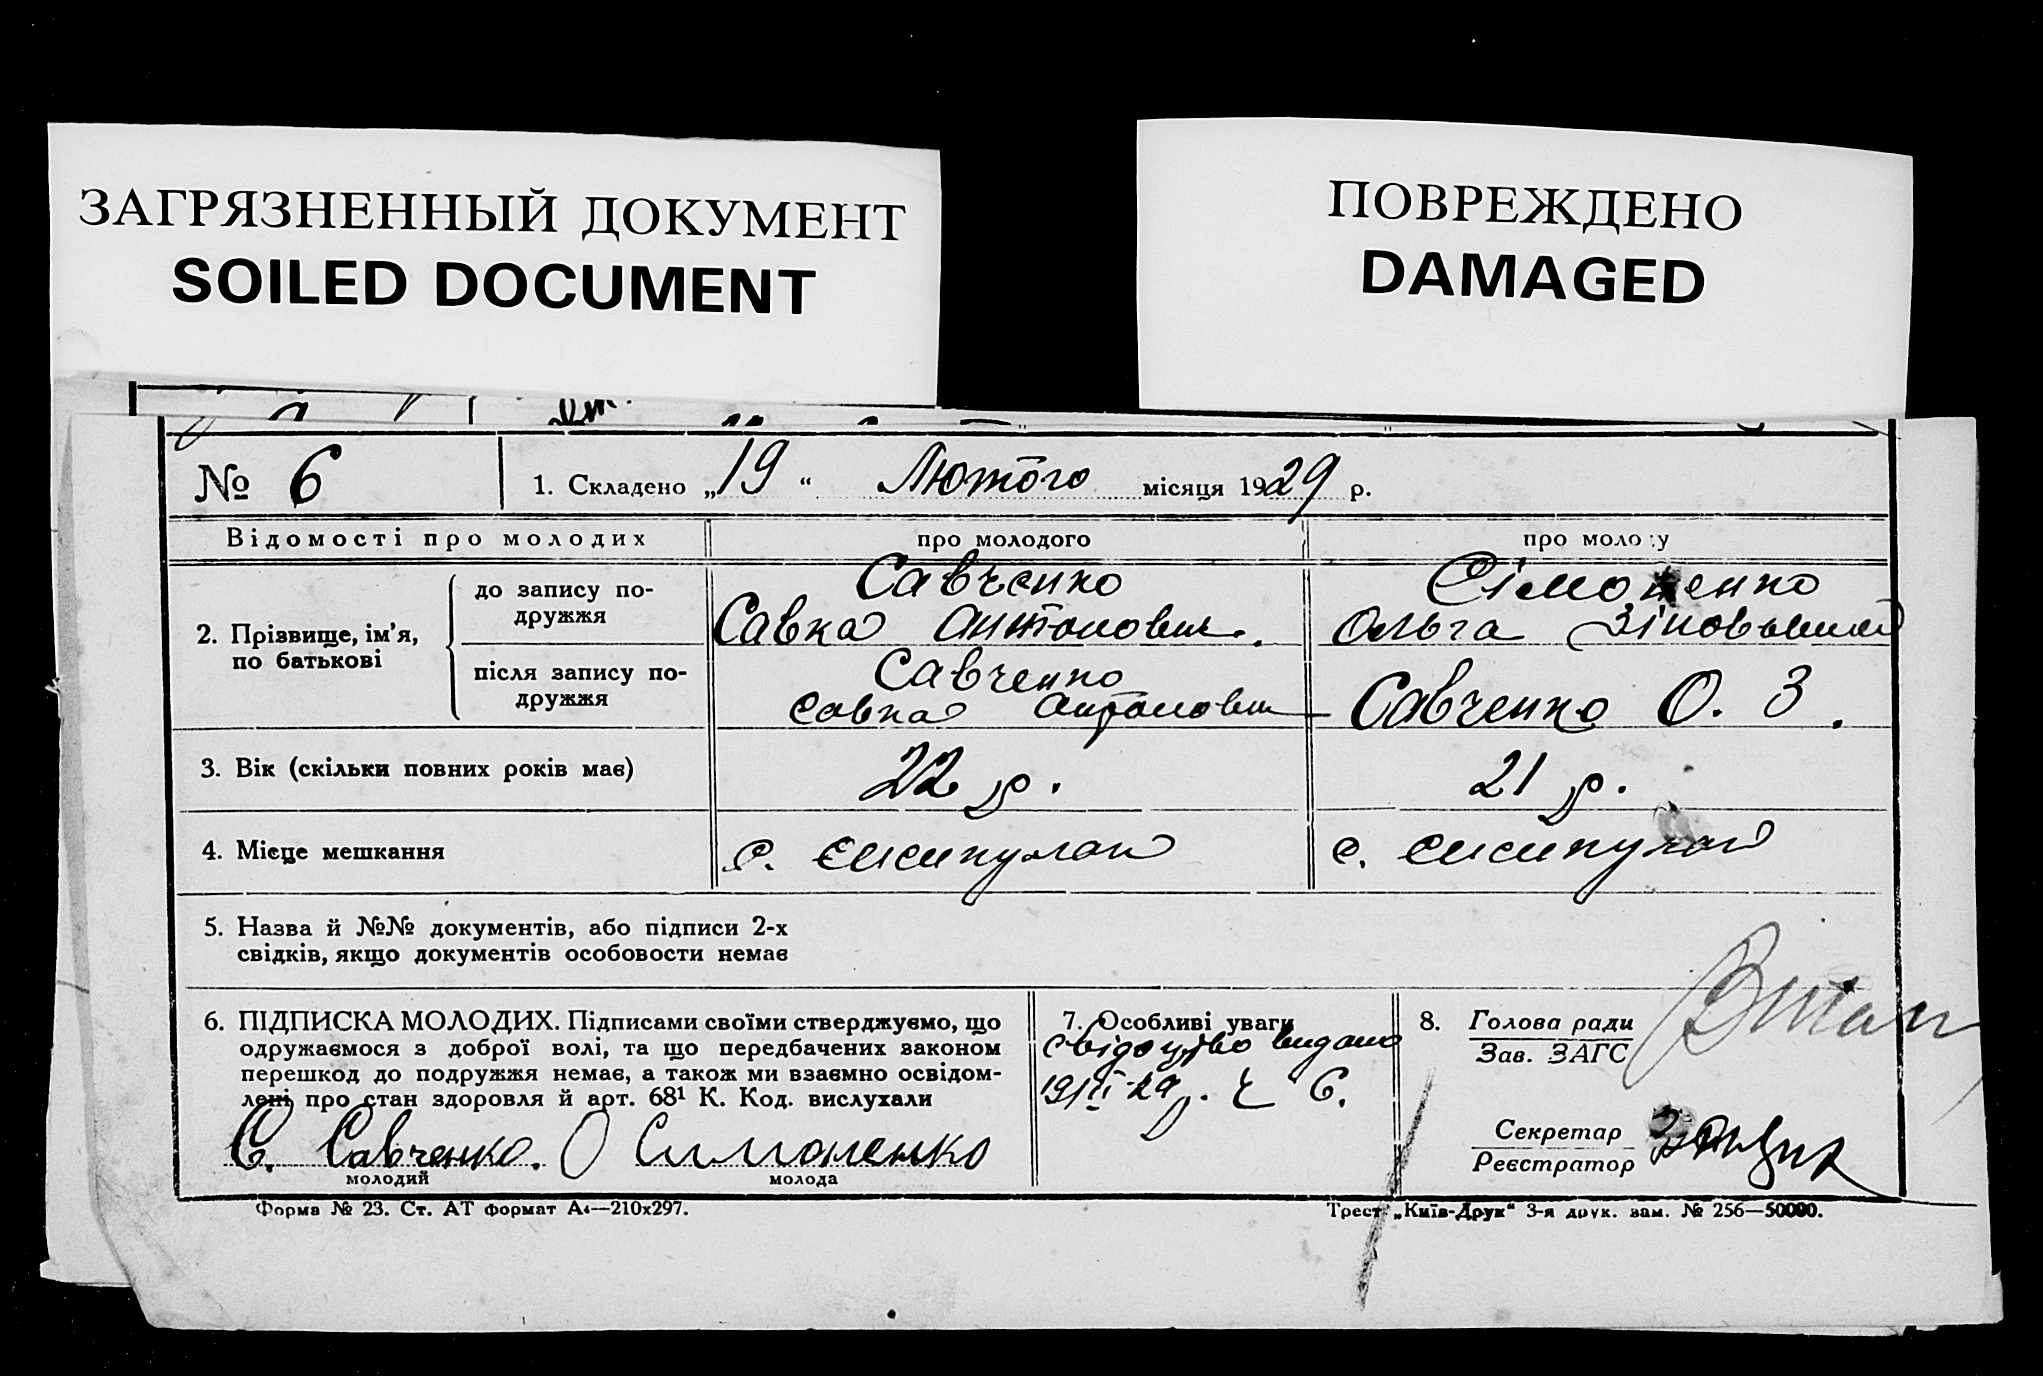 ЗАГРЯЗНЕННЫЙ ДОКУМЕНТ
SOILED DOCUMENT
ПОВРЕЖДЕНО
DAMAGED
№ 6
1. Складено „19“ Лютого місяця 1929 р.
Відомості про молодих
про молодого
про молоду
2. Прізвище, ім'я, по батькові
до запису по-
дружжя
Савченко
Савка Антонович.
Сімоненко
Ольга
після запису по-
дружжя
Савченко
Савка Антонович
Савченко О. З.
3. Вік (скільки повних років має)
22 р.
21 р.
4. Місце мешкання
с.
с.
5. Назва й №№ документів, або підписи 2-х
свідків, якщо документів особовости немає
6. ПІДПИСКА МОЛОДИХ. Підписами своїми стверджуємо, що
одружаємося з доброї волі, та що передбачених законом
перешкод до подружжя немає, а також ми взаємно освідом-
лені про стан здоровля й арт. 68¹ К. Код. вислухали
С. Савченко. О Симоненко
молодий
молода
7. Особливі уваги
Свідоцтво видано
19/II-29 р. Ч 6.
8. Голова ради
Зав. ЗАГС
Секретар
Реєстратор
Форма № 23. Ст. АТ формат А4—210x297.
Трест „Київ-Друк“ 3-я друк. зам. № 256—50000.